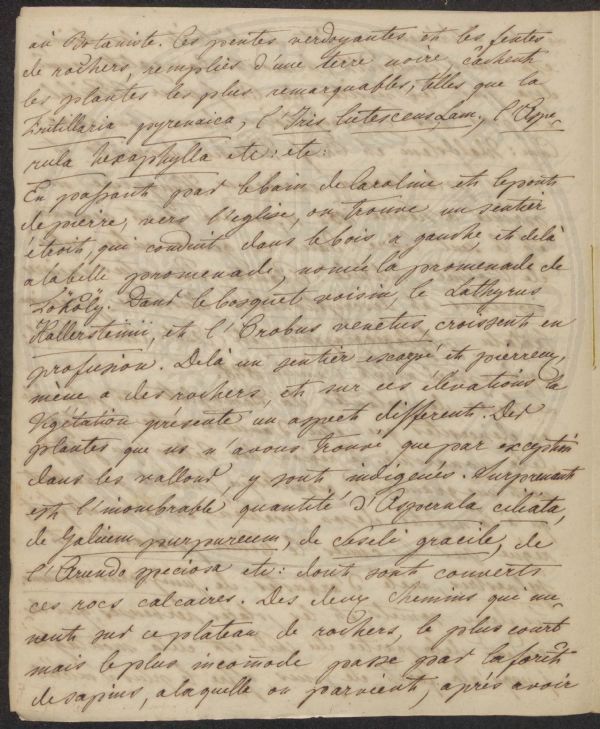 au Botaniste. Ces pentes verdoyantes et les fentes
de rochers, remplies d'une terre noire, cachent
les plantes les plus remarquables, telles que la
Fritillaria pyrenaica, l'Iris lutescens Lam., l'Aspe-
rula hexaphylla etc: etc:
En passant par le bain de Caroline et le pont
de pierre, vers l'eglise, on trouve un sentier
étroit, qui conduit dans le bois, a gauche, et de là
a la belle promenade, nomée la promenade de
Zökoly. Dans le bosquet voisin, le Lathyrus
Hallersteinii, et l'Orobus venetus, croissent en
profusion. De là un sentier escarpé et pierreux,
mène a des rochers, et sur ces élévations la
Végétation présente un aspect different. Des
plantes que ns n'avons trouvé que par exception
dans les vallons, y sont indigenés. Surprenante
est l'inombrable quantité d'Asperula ciliata,
de Galium purpureum, de Seseli gracile, de
l'Arundo speciosa etc: dont sont couverts
ces rocs calcaires. Des deux chemins qui mé-
nent sur ce plateau de rochers, le plus court
mais le plus incomode passe par la forêt
de sapins, a laquelle on parvient, après avoir